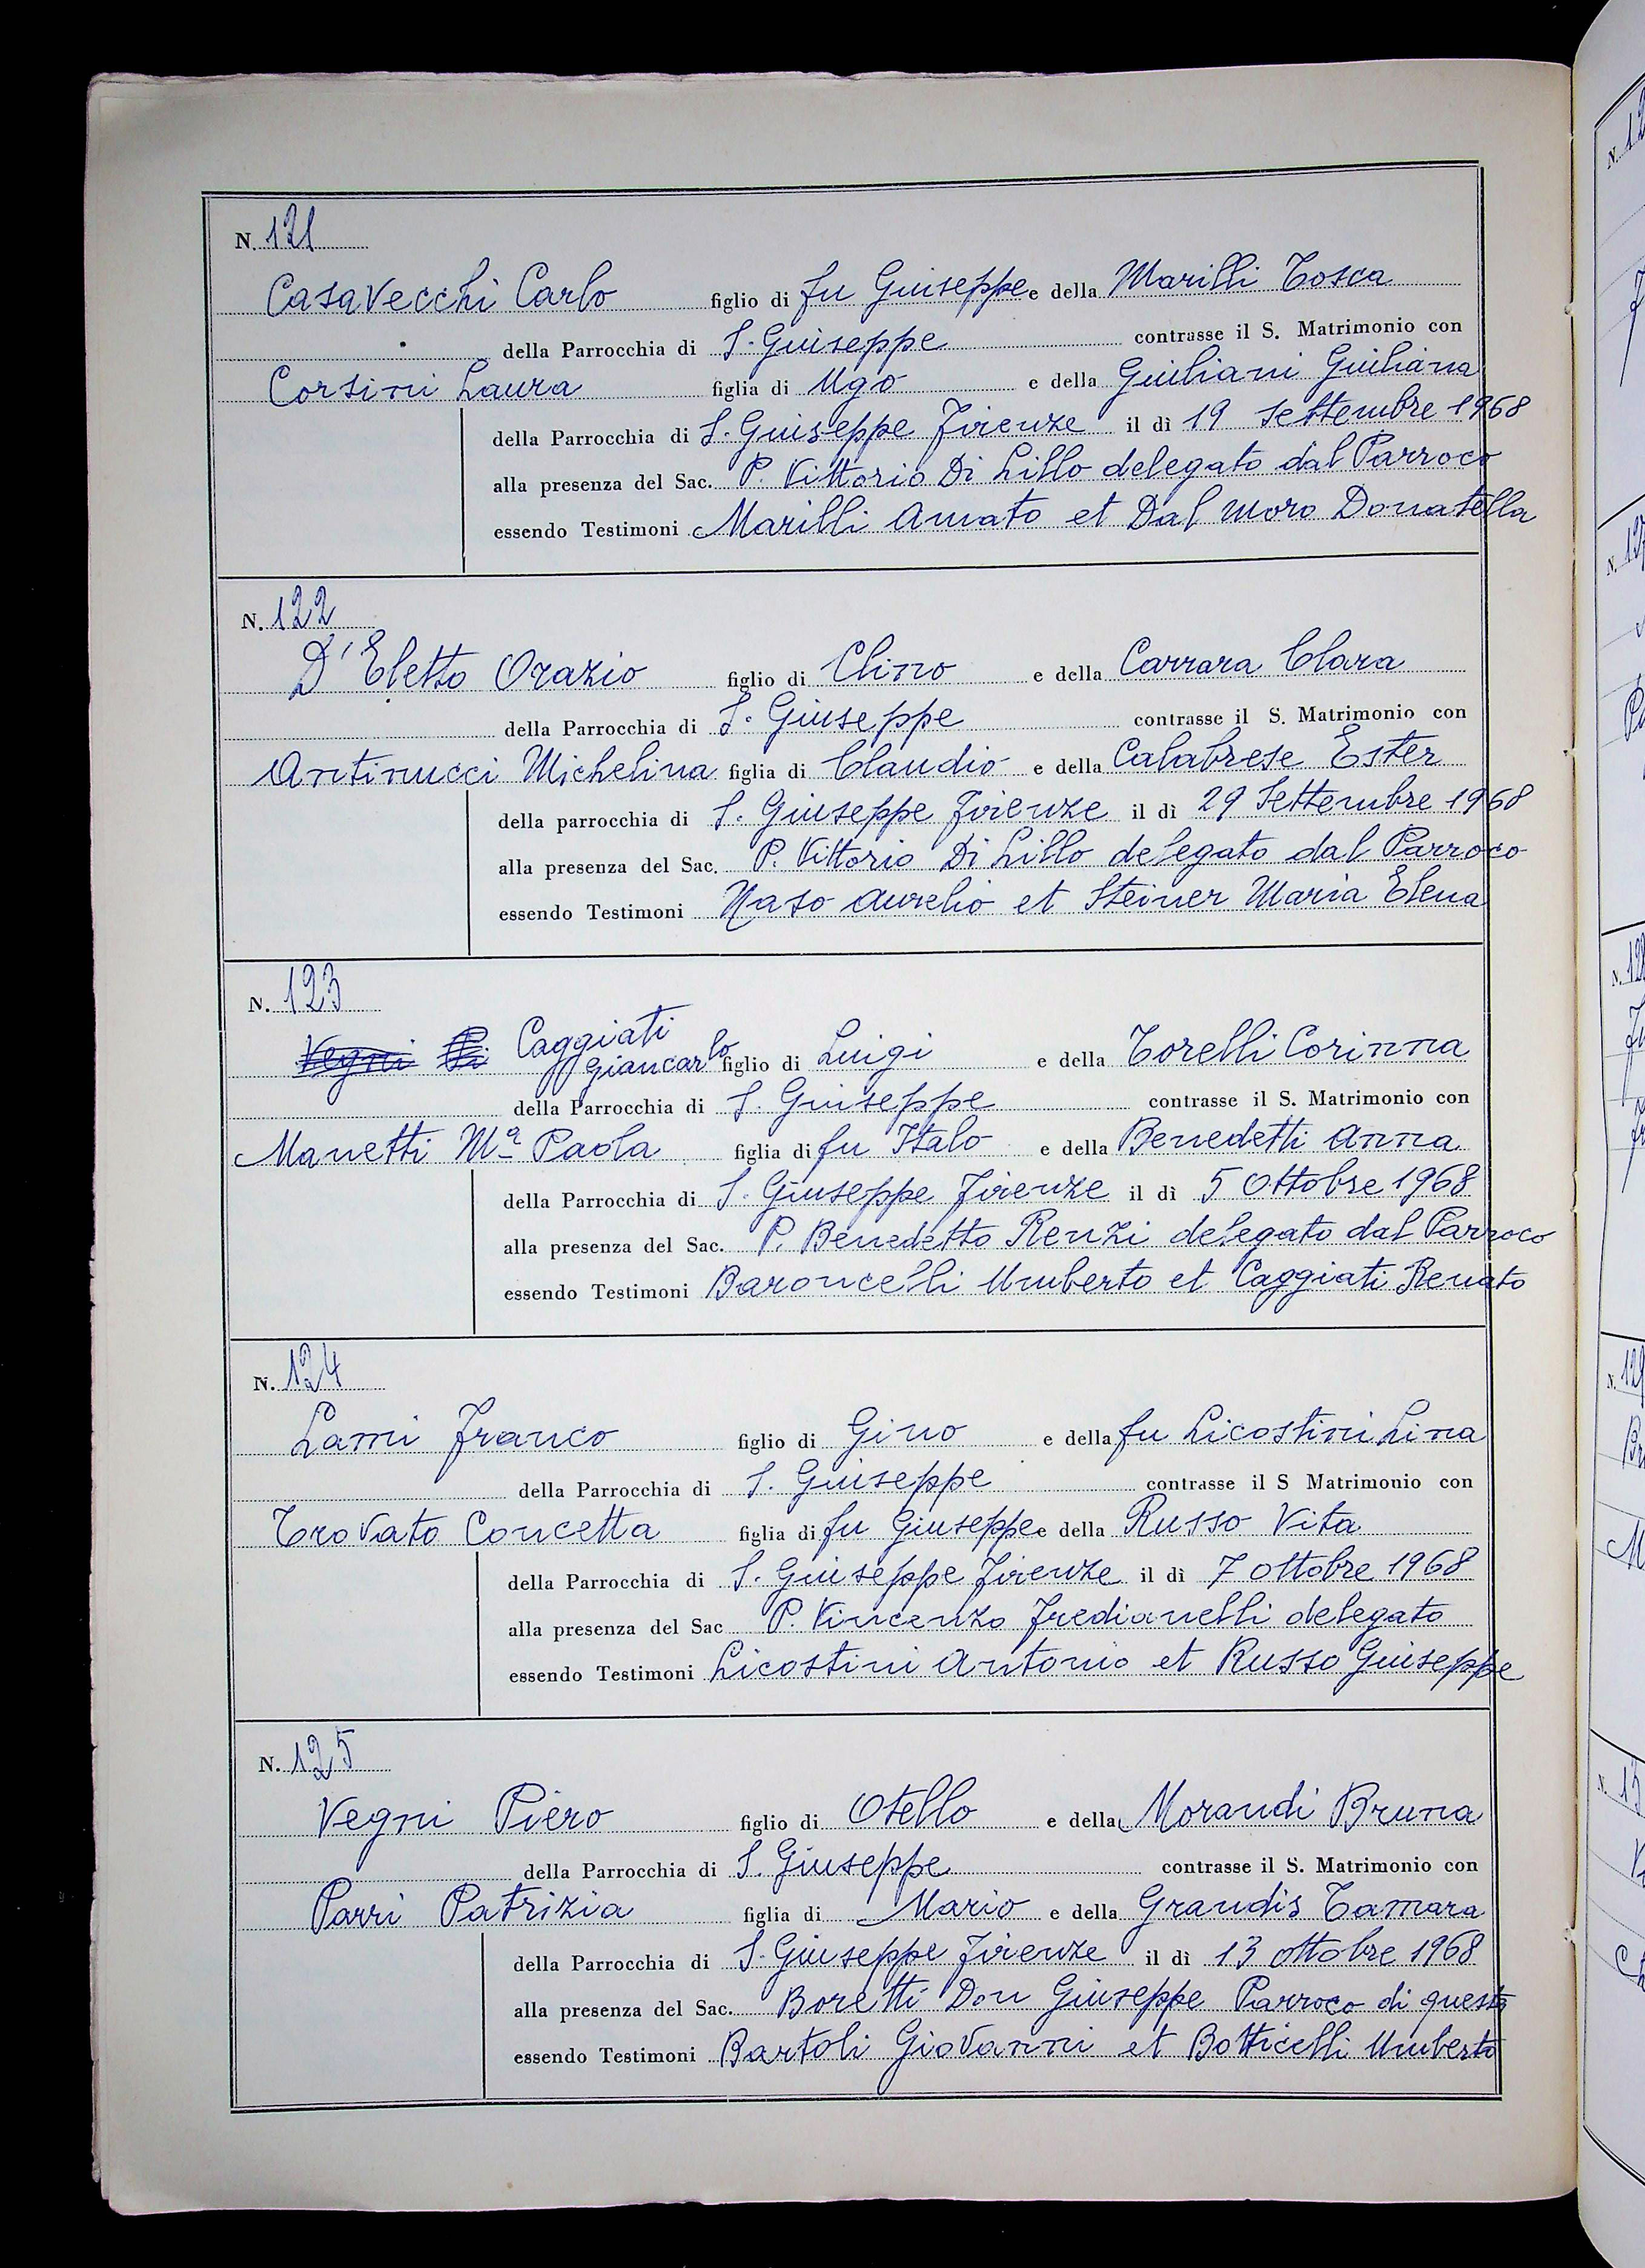 N. 121
Casavecchi Carlo figlio di fu Giuseppe e della Marilli Tosca
della Parrocchia di S. Giuseppe contrasse il S. Matrimonio con
Corsini Laura figlia di Ugo e della Giuliani Giuliana
della Parrocchia di S. Giuseppe Firenze il dì 19 Settembre 1968
alla presenza del Sac. P. Vittorio Di Lillo delegato dal Parroco
essendo Testimoni Marilli Amato et Dal Moro Donatella
N. 122
D'Eletto Orazio figlio di Clino e della Carrara Clara
della Parrocchia di S. Giuseppe contrasse il S. Matrimonio con
Antinucci Michelina figlia di Claudio e della Calabrese Ester
della parrocchia di S. Giuseppe Firenze il dì 29 Settembre 1968
alla presenza del Sac. P. Vittorio Di Lillo delegato dal Parroco
essendo Testimoni Naso Aurelio et Steiner Maria Elena
N. 123
Vegni Pi Caggiati
Giancarlo figlio di Luigi e della Torelli Corinna
della Parrocchia di S. Giuseppe contrasse il S. Matrimonio con
Manetti Mª Paola figlia di fu Italo e della Benedetti Anna
della Parrocchia di S. Giuseppe Firenze il dì 5 Ottobre 1968
alla presenza del Sac. P. Benedetto Renzi delegato dal Parroco
essendo Testimoni Baroncelli Umberto et Caggiati Renato
N. 124
Lami Franco figlio di Gino e della fu Licostini Lina
della Parrocchia di S. Giuseppe contrasse il S Matrimonio con
Trovato Concetta figlia di fu Giuseppe e della Russo Vita
della Parrocchia di S. Giuseppe Firenze il dì 7 ottobre 1968
alla presenza del Sac P. Vincenzo Fredianelli delegato
essendo Testimoni Licostini Antonio et Russo Giuseppe
N. 125
Vegni Piero figlio di Otello e della Morandi Bruna
della Parrocchia di S. Giuseppe contrasse il S. Matrimonio con
Parri Patrizia figlia di Mario e della Grandis Tamara
della Parrocchia di S. Giuseppe Firenze il dì 13 ottobre 1968
alla presenza del Sac. Boretti Don Giuseppe Parroco di questa
essendo Testimoni Bartoli Giovanni et Botticelli Umberto